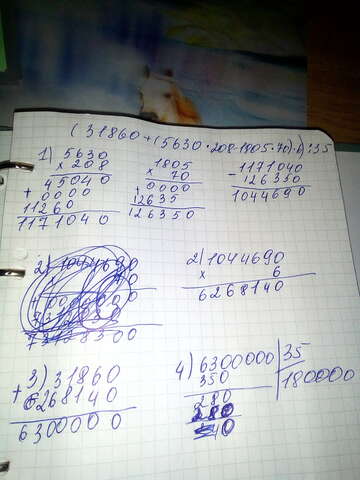 (31860+(5630·208-1805·70)·6):35
1) 5630
× 208
45040
+ 0000
11260
1171040
1805
× 70
0000
+ 12635
126350
- 1171040
126350
1044690
2) 1044690
2) 1044690
× 6
6268140
3) 31860
+ 6268140
6300000
4) 6300000 35
350 180000
280
280